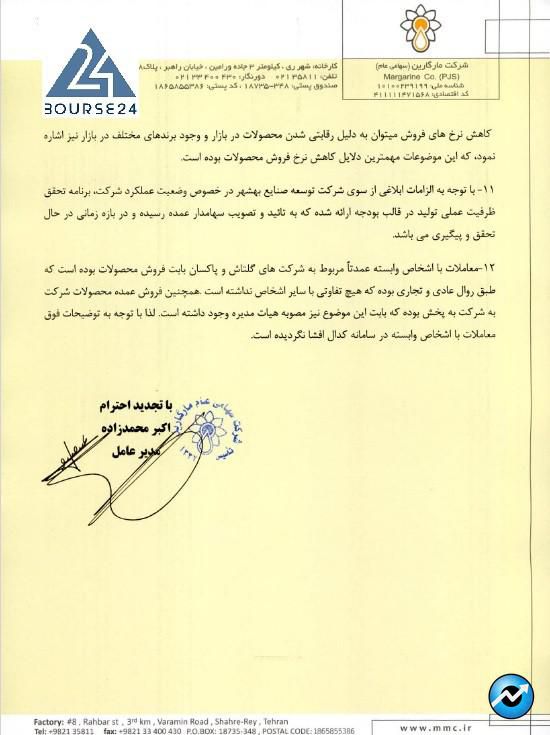 BOURSE24
کارخانه: شهر ری ، کیلومتر ۳ جاده ورامین ، خیابان راهبر ، پلاک۸
تلفن: ۰۲۱۳۵۸۱۱ دورنگار: ۰۲۱۳۳۴۰۰۴۳۰
صندوق پستی: ۳۴۸-۱۸۷۳۵ ، کد پستی: ۱۸۶۵۸۵۵۳۸۶
شرکت مارگارین (سهامی عام)
Margarine Co. (PJS)
شناسه ملی: ۱۰۱۰۰۲۳۹۱۹۹
کد اقتصادی: ۴۱۱۱۱۱۴۷۱۵۶۸
کاهش نرخ های فروش میتوان به دلیل رقابتی شدن محصولات در بازار و وجود برندهای مختلف در بازار نیز اشاره
نمود، که این موضوعات مهمترین دلایل کاهش نرخ فروش محصولات بوده است.
۱۱- با توجه به الزامات ابلاغی از سوی شرکت توسعه صنایع بهشهر در خصوص وضعیت عملکرد شرکت، برنامه تحقق
ظرفیت عملی تولید در قالب بودجه ارائه شده که به تائید و تصویب سهامدار عمده رسیده و در بازه زمانی در حال
تحقق و پیگیری می باشد.
۱۲-معاملات با اشخاص وابسته عمدتاً مربوط به شرکت های گلتاش و پاکسان بابت فروش محصولات بوده است که
طبق روال عادی و تجاری بوده که هیچ تفاوتی با سایر اشخاص نداشته است .همچنین فروش عمده محصولات شرکت
به شرکت به پخش بوده که بابت این موضوع نیز مصوبه هیات مدیره وجود داشته است. لذا با توجه به توضیحات فوق
معاملات با اشخاص وابسته در سامانه کدال افشا نگردیده است.
با تجدید احترام
اکبر محمدزاده
مدیر عامل
شرکت سهامی عام مارگارین
۱۳۳۲
Factory: #8 , Rahbar st , 3rd km , Varamin Road , Shahre-Rey , Tehran
Tel: +9821 35811 fax: +9821 33 400 430 P.O.BOX: 18735-348 , POSTAL CODE: 1865855386
www.mmc.ir